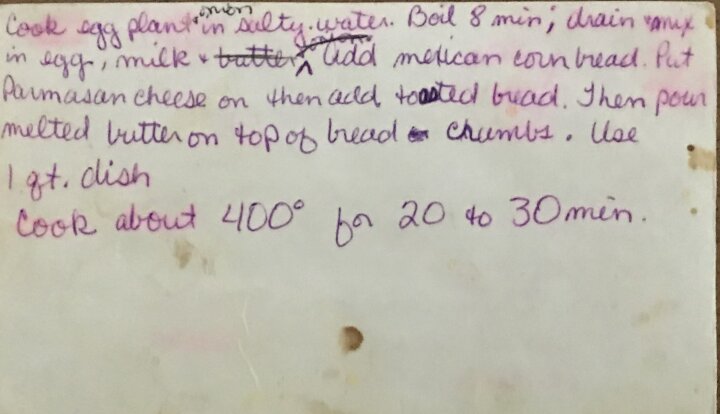 Cook egg plant + onion in salty water. Boil 8 min; drain + mix
in egg, milk + butter. Add mexican corn bread. Put
Parmasan cheese on then add toasted bread. Then pour
melted butter on top of bread chumbs. Use
1 qt. dish
Cook about 400° for 20 to 30 min.